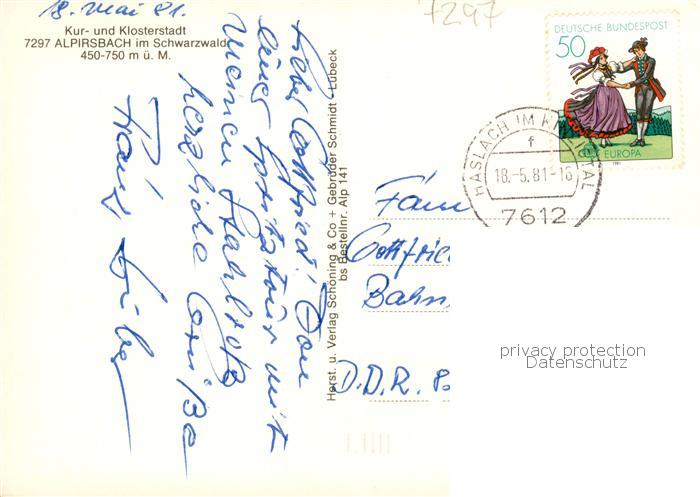 18. Mai 81.
7297
Kur- und Klosterstadt
7297 ALPIRSBACH im Schwarzwald
450-750 m ü. M.
Lieber Gottfried! Von
einer Spritztour mit
meinem Stahlroß
herzliche Grüße
Franz
Herst. u. Verlag Schöning & Co + Gebrüder Schmidt - Lübeck
bs Bestellnr. Alp 141
DEUTSCHE BUNDESPOST
50
EUROPA
1981
HASLACH IM KINZIGTAL
f
18.-5.81-16
7612
Fam
Gottfrie
Bahn
D.D.R. 8
privacy protection
Datenschutz